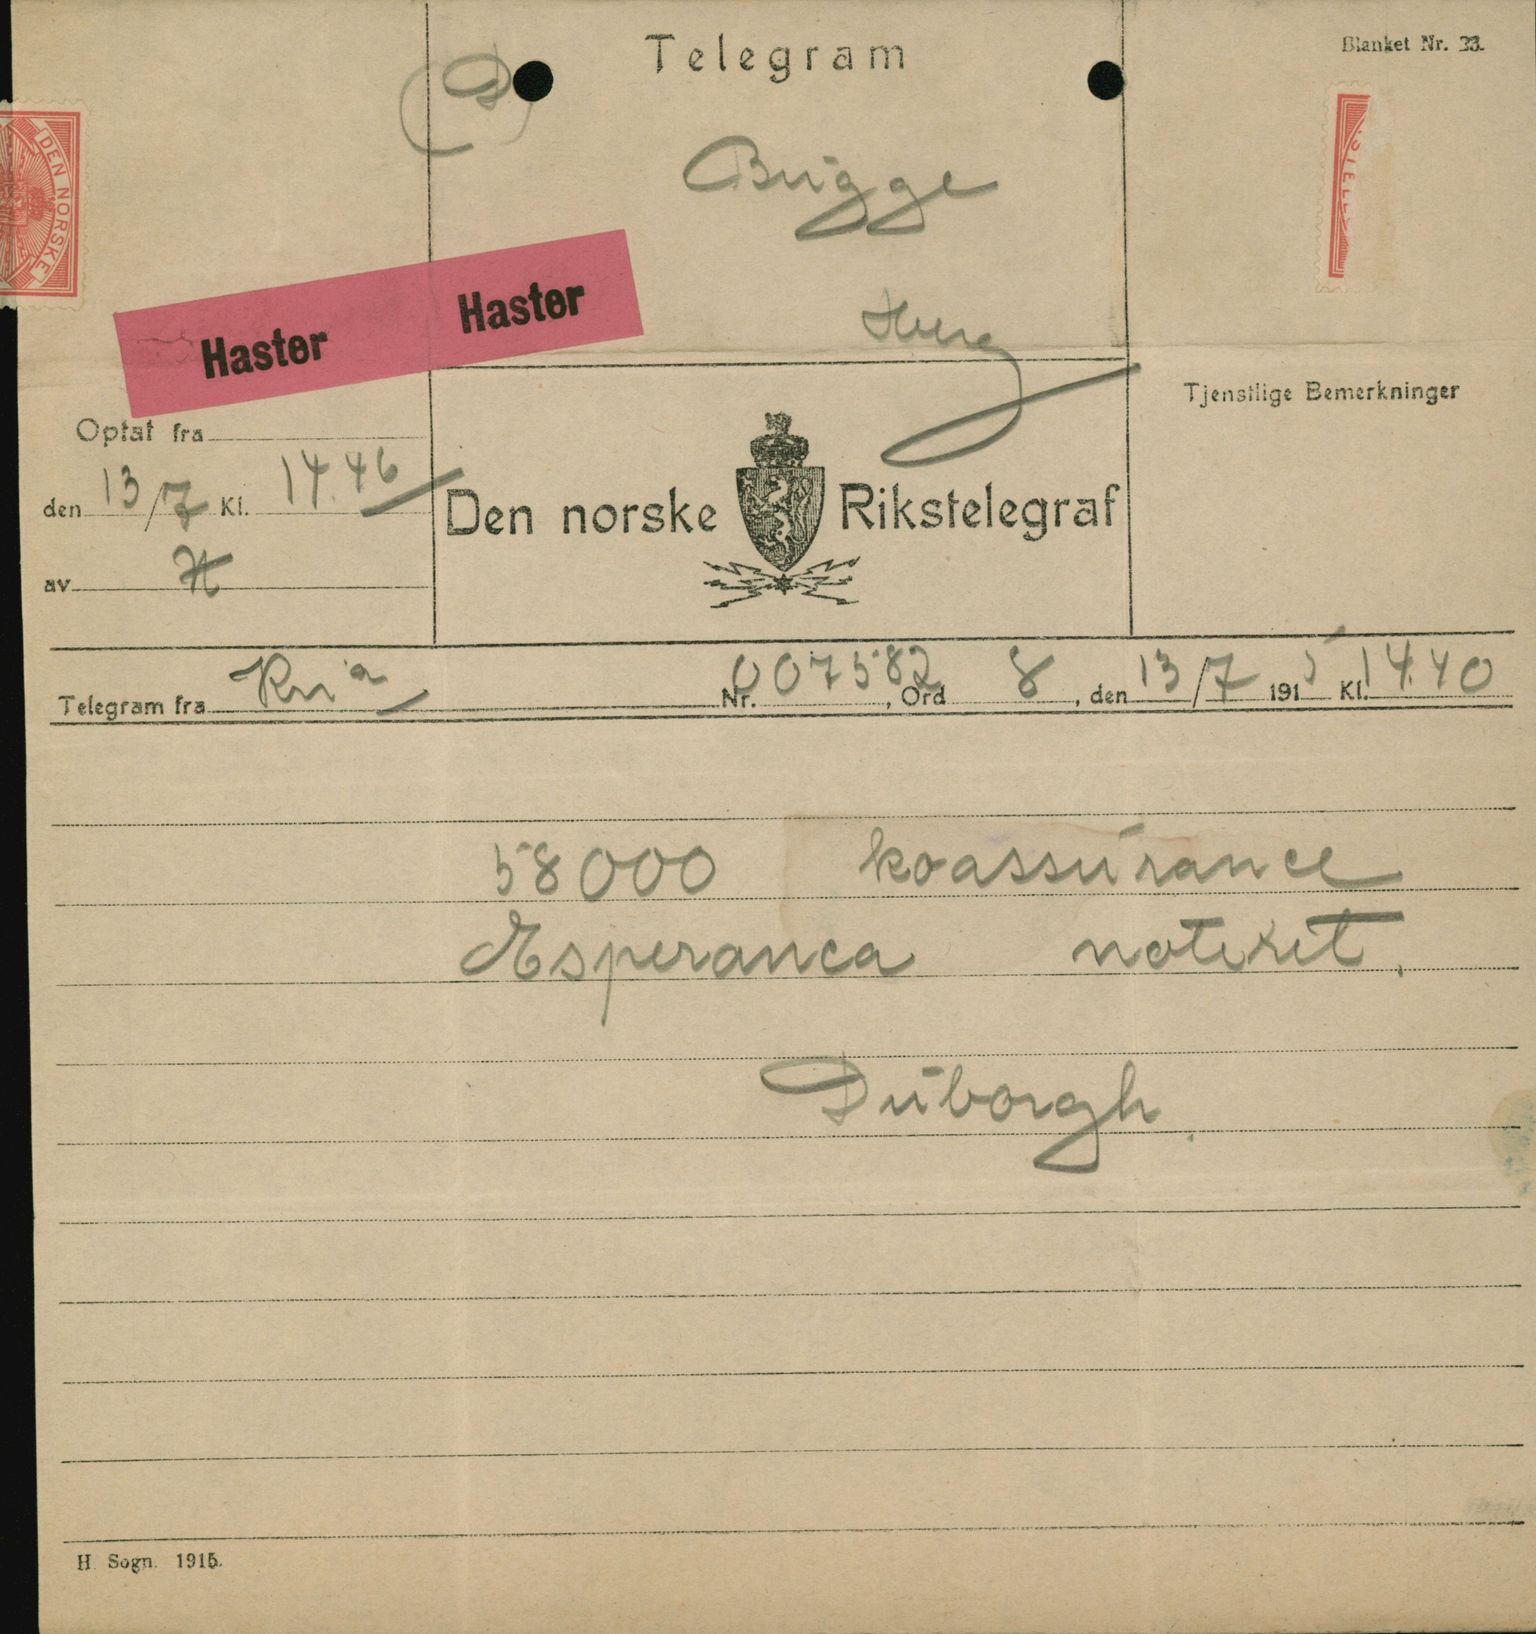 Telegram
Blanket Nr. 33.
(D)
Bugge
Hberg
DEN NORSKE
Haster Haster
Tjenstlige Bemerkninger
Optat fra
den 13/7 Kl. 14.46
av H
Den norske Rikstelegraf
Telegram fra Kria Nr. 007582, Ord 8, den 13/7 1915 Kl. 14.40
58000 koassurance
Esperanca noteret.
Duborgh.
H. Sogn. 1915.